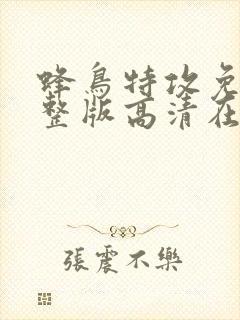 蜂鳥特攻免
整版高清在
張震不樂